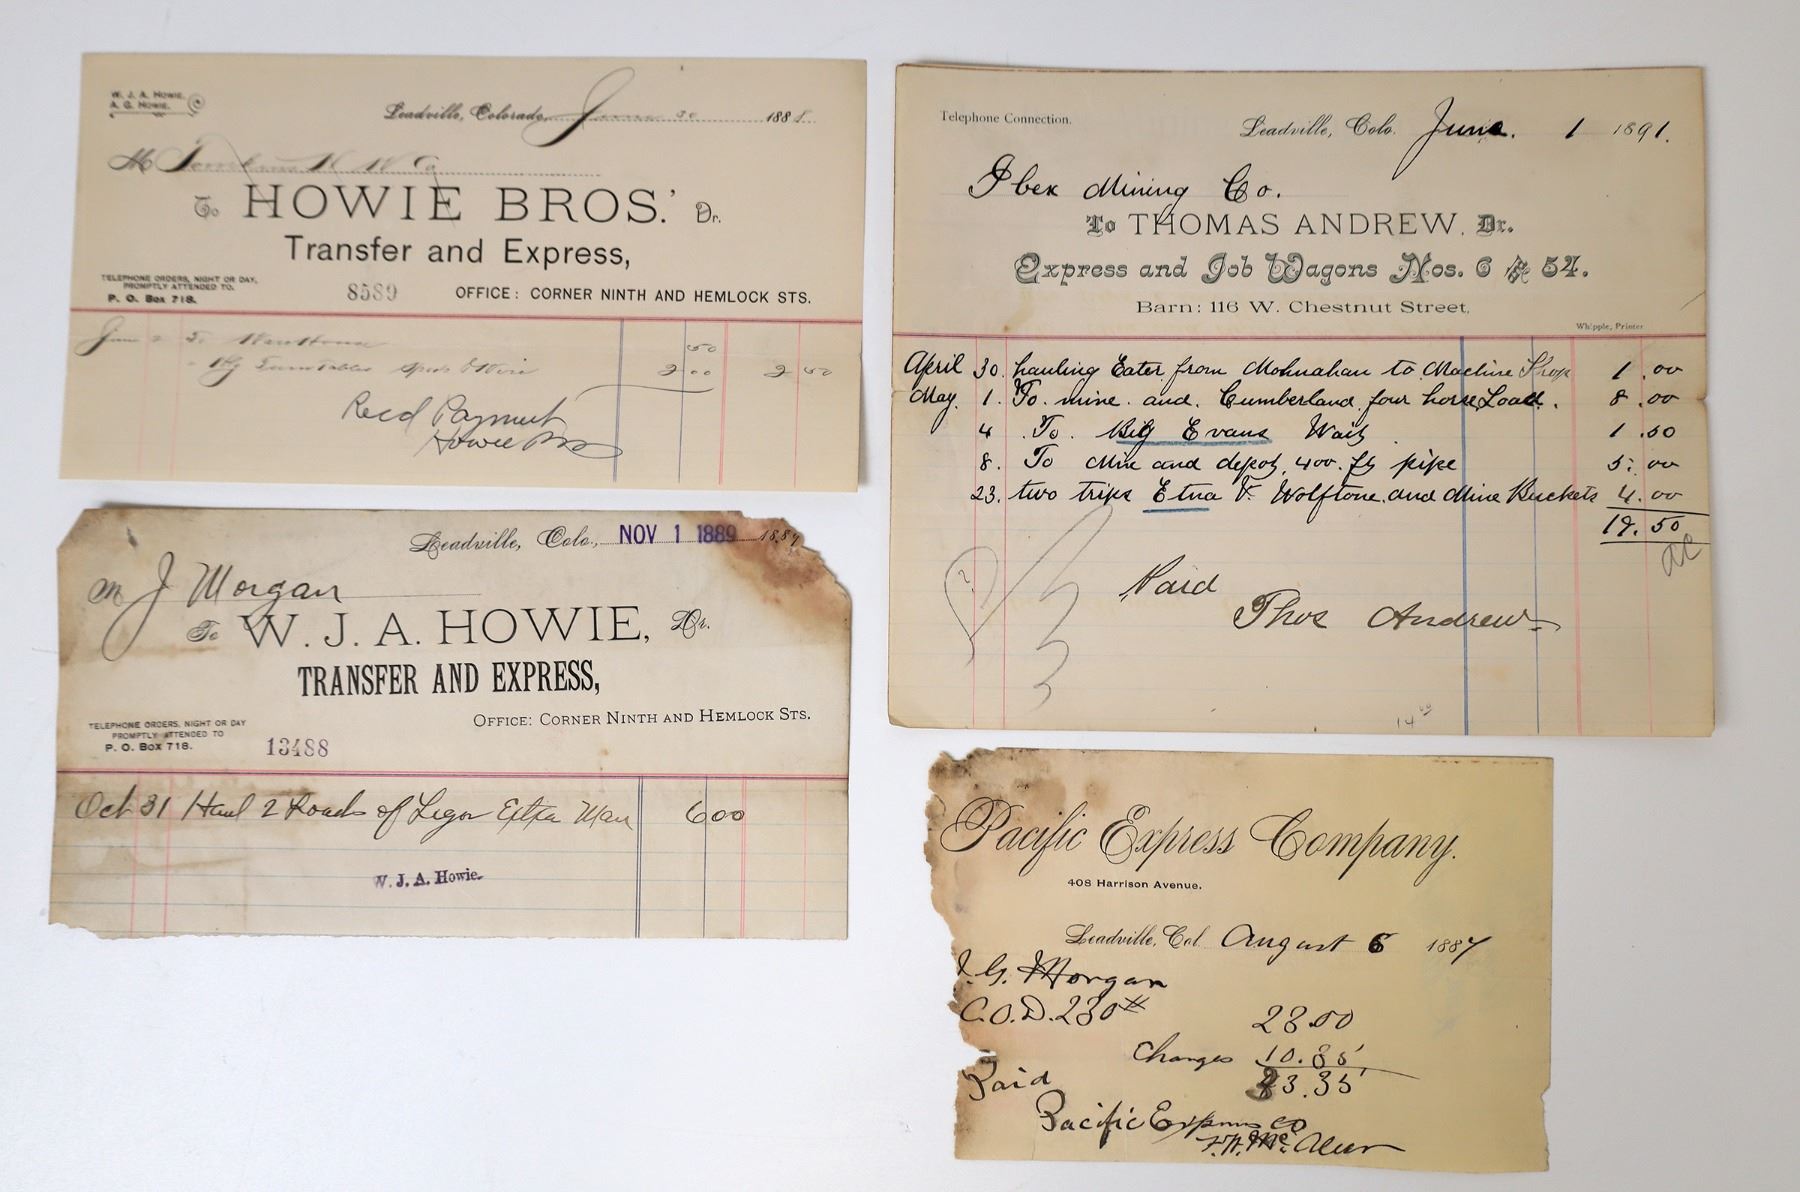 W. J. A. HOWIE.
A. G. HOWIE.
Leadville, Colorado, June 30 1888.
M
To HOWIE BROS.' Dr.
Transfer and Express,
TELEPHONE ORDERS, NIGHT OR DAY,
PROMPTLY ATTENDED TO.
P. O. Box 718.
8589
OFFICE: CORNER NINTH AND HEMLOCK STS.
June 50
2 00 2 50
Recd Payment
Howie Bros
Telephone Connection.
Leadville, Colo. June. 1 1891.
Ibex Mining Co.
To THOMAS ANDREW, Dr.
Express and Job Wagons Nos. 6 & 54.
Barn: 116 W. Chestnut Street,
Whipple, Printer
April 30. hauling Eater from Mohnahan to Machine Shop 1.00
May. 1. To. mine. and. Cumberland. four horse Load. 8.00
4 To. Big Evans Wait 1.50
8. To Mine and depot, 400. ft pipe 5.00
23. two trips Etna & Wolftone. and Mine Buckets 4.00
19.50
Paid
Thos Andrew
14 00
Leadville, Colo., NOV 1 1889 1889
M J Morgan
To W. J. A. HOWIE, Dr.
TRANSFER AND EXPRESS,
OFFICE: CORNER NINTH AND HEMLOCK STS.
TELEPHONE ORDERS, NIGHT OR DAY
PROMPTLY ATTENDED TO
P. O. BOX 718.
13488
Oct 31 Haul 2 Loads of Extra Man 6 00
W. J. A. Howie.
Pacific Express Company.
408 Harrison Avenue.
Leadville, Col. August 6 1887
J. G. Morgan
C.O.D. 230 23.00
Charges 10.35
33.35
Paid
Pacific Express Co